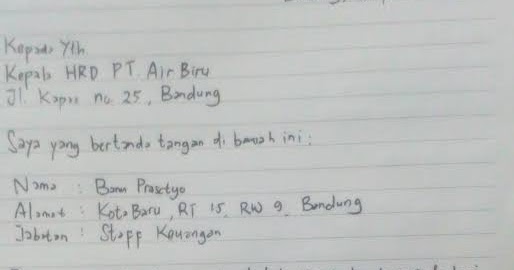 Kepada Yth.
Kepala HRD PT. Air Biru
Jl. Kapas no. 25, Bandung
Saya yang bertanda tangan di bawah ini:
Nama : Banu Prasetyo
Alamat : Kota Baru, RT 15, RW 9, Bandung
Jabatan : Staff Keuangan